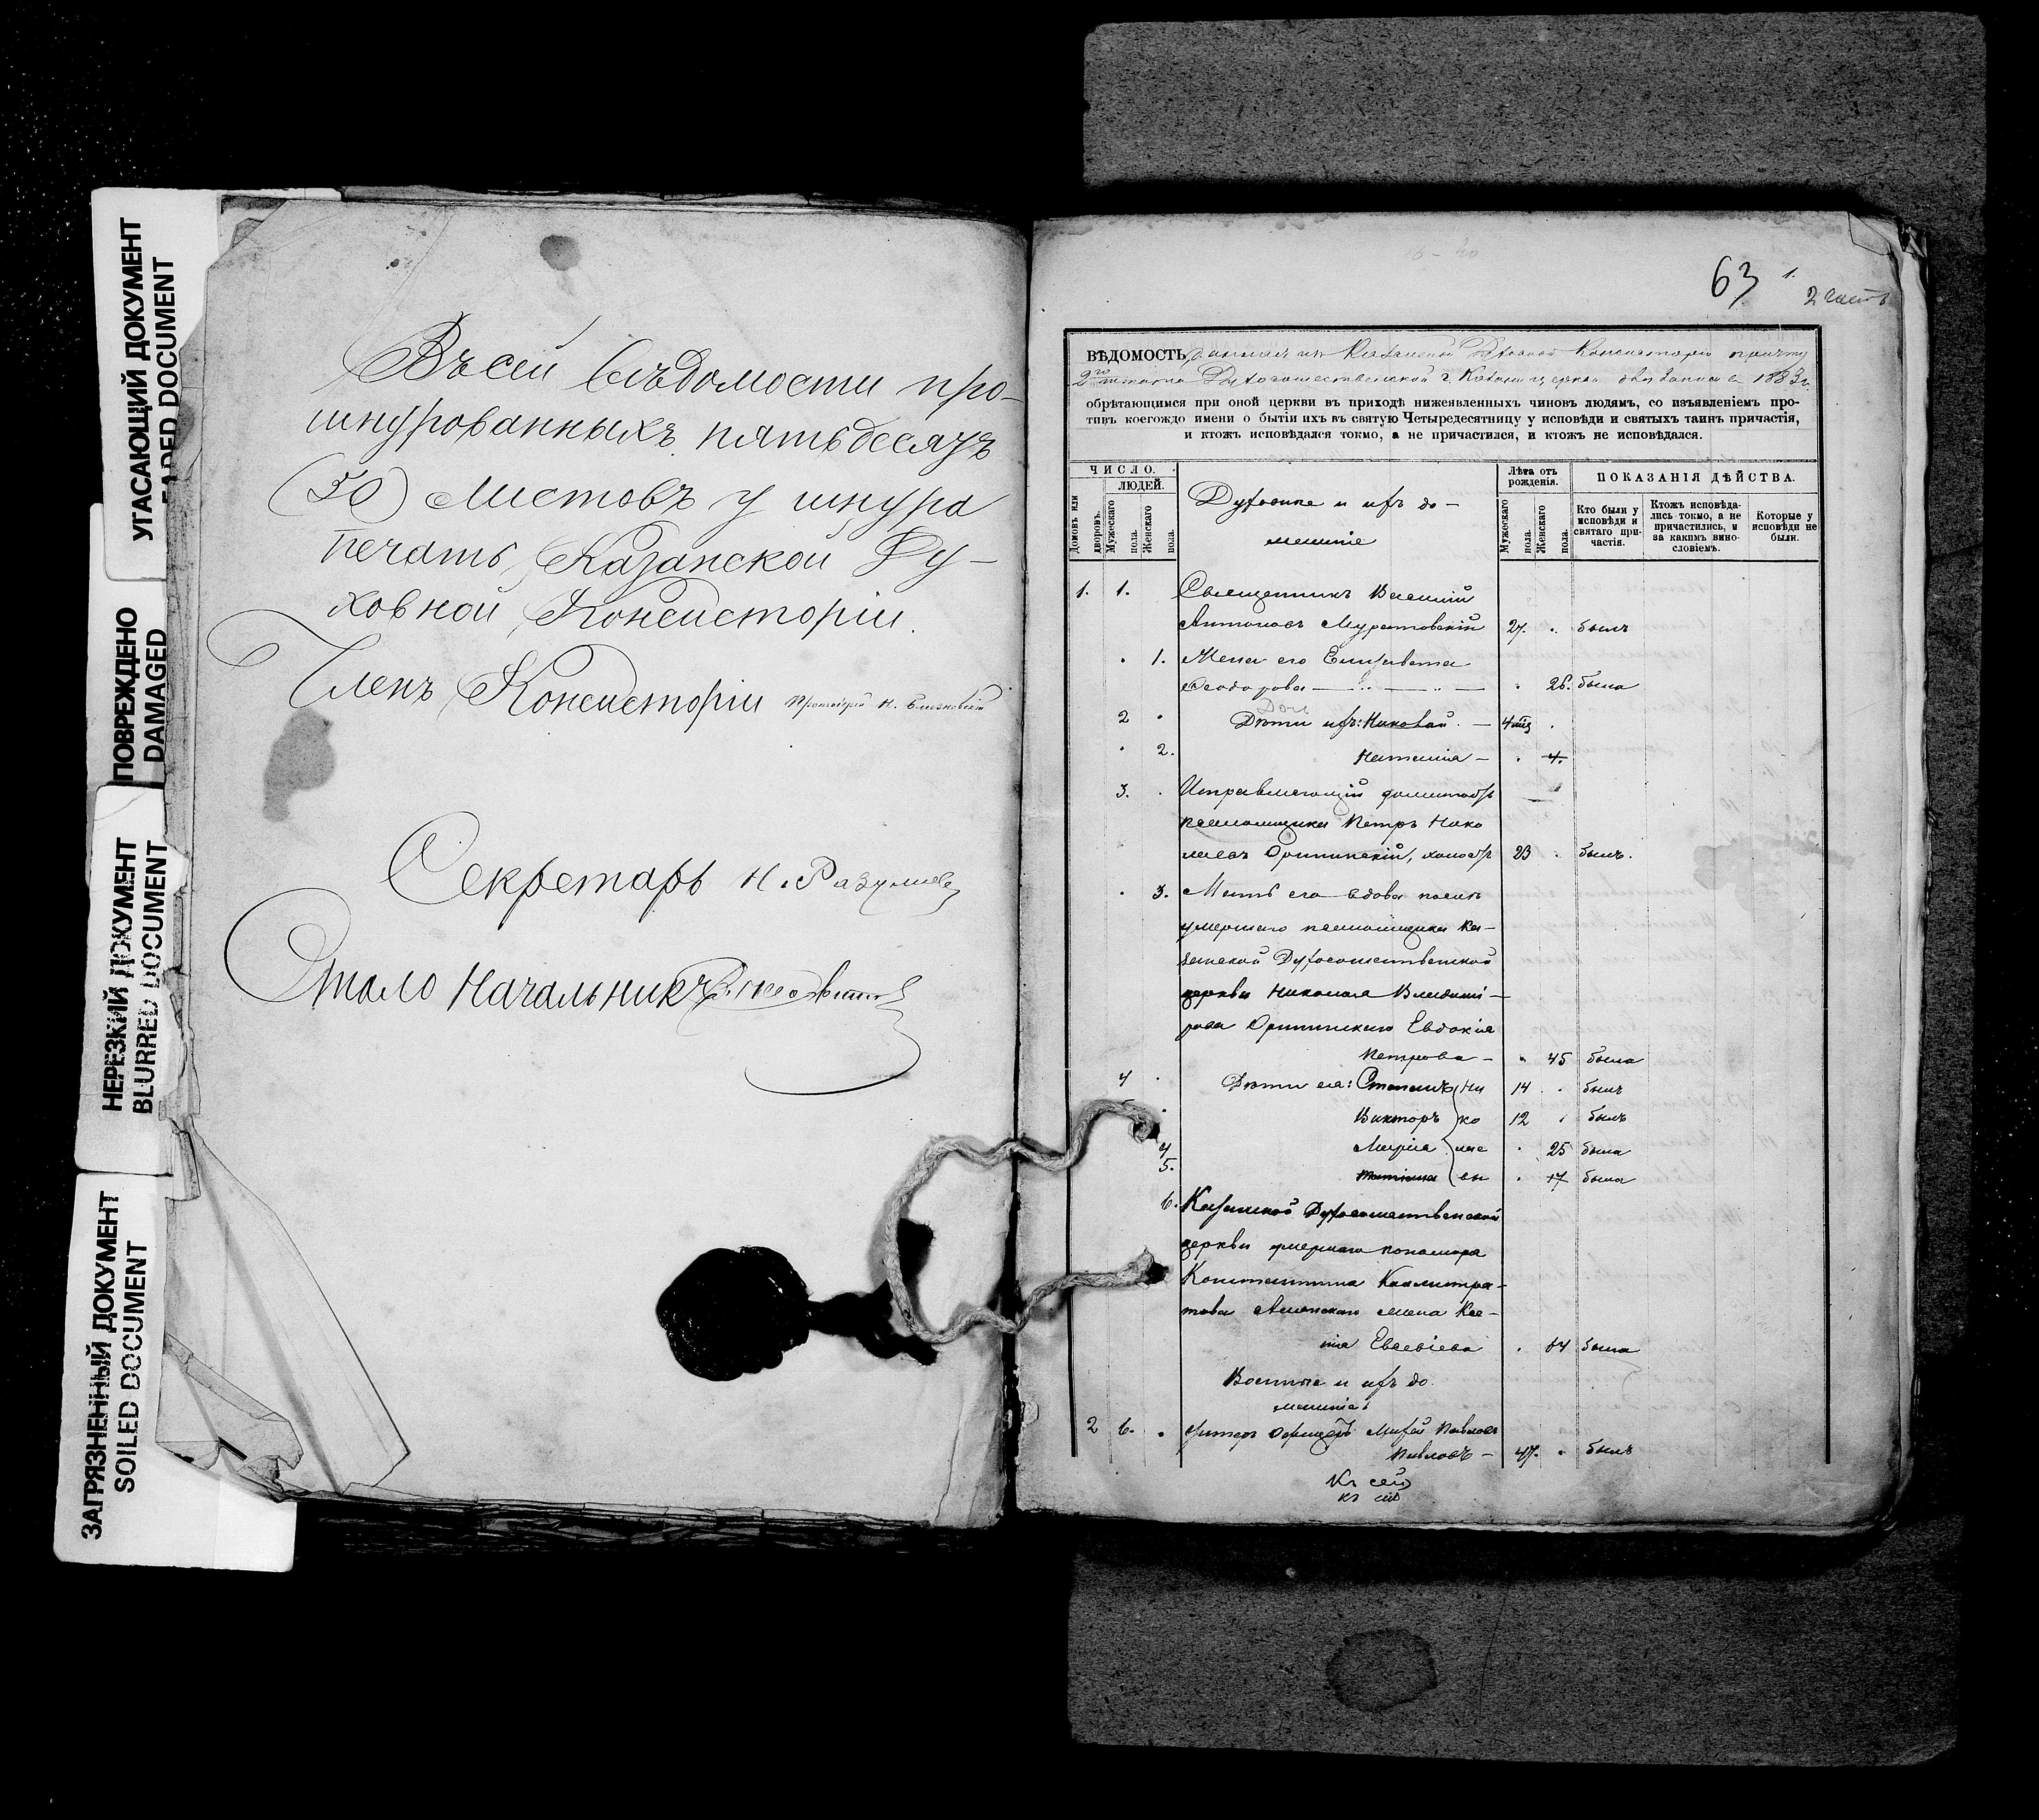 УГАСАЮЩИЙ ДОКУМЕНТ
FADED DOCUMENT
ПОВРЕЖДЕНО
DAMAGED
НЕРЕЗКИЙ ДОКУМЕНТ
BLURRED DOCUMENT
ЗАГРЯЗНЕННЫЙ ДОКУМЕНТ
SOILED DOCUMENT
Въ сей вѣдомости про-
шнурованныхъ пятьдесятъ
(50) листовъ у шнура
печать Казанской Ду-
ховной Консисторіи.
Членъ Консисторіи Протоіерей
Секретарь Н. Разумовъ
Столоначальникъ
63 1.
2 часть
ВѢДОМОСТЬ, данная изъ Казанской Духовной Консисторіи причту
2го штата Духосошественской г. Казани церкви для записи въ 1883 г.
обрѣтающимся при оной церкви въ приходѣ нижеявленныхъ чиновъ людямъ, со изъявленіемъ про-
тивъ коегождо имени о бытіи ихъ въ святую Четыредесятницу у исповѣди и святыхъ таинъ причастія,
и ктожъ исповѣдался токмо, а не причастился, и ктожъ не исповѣдался.
ЧИСЛО.
ЛЮДЕЙ.
Домовъ или дворовъ.
Мужескаго пола.
Женскаго пола.
Духовные и ихъ до-
машніе
Лѣта отъ рожденія.
Мужескаго пола.
Женскаго пола.
ПОКАЗАНІЯ ДѢЙСТВА.
Кто были у исповѣди и святаго причастія.
Ктожъ исповѣда-лись токмо, а не причастились, и за какимъ вино-словіемъ.
Которые у исповѣди не были.
1. 1. Священникъ Василій
Антоновъ Муратовскій 27. . былъ
. 1. Жена его Елизавета
Ѳеодорова — . 26. была
Дочь
2 . Дѣти ихъ: Николай. — 4 мѣс .
. 2. Наталія — . 4.
3. . Исправляющій должность
псаломщика Петръ Нико
лаевъ холостъ 23 . былъ.
. 3. Мать его вдова послѣ
умершаго псаломщика Ка-
занской Духосошественской
церкви Николая Владимі-
рова Евдокія
Петрова — . 45 была
4 . Дѣти ея: Степанъ Ни 14 . былъ
. Викторъ ко 12 . былъ
4 Марія лае . 25 была
5. Татіана вы . 17 была
6. Казанской Духосошественской
церкви умершаго пономаря
Константина Каллистра-
това жена Ксе-
нія Евсевіева . 64 была
Военные и ихъ до
машніе:
2 6. . Унтеръ Офицеръ Павловъ
Павловъ — 47. . былъ
Къ сей
къ сей